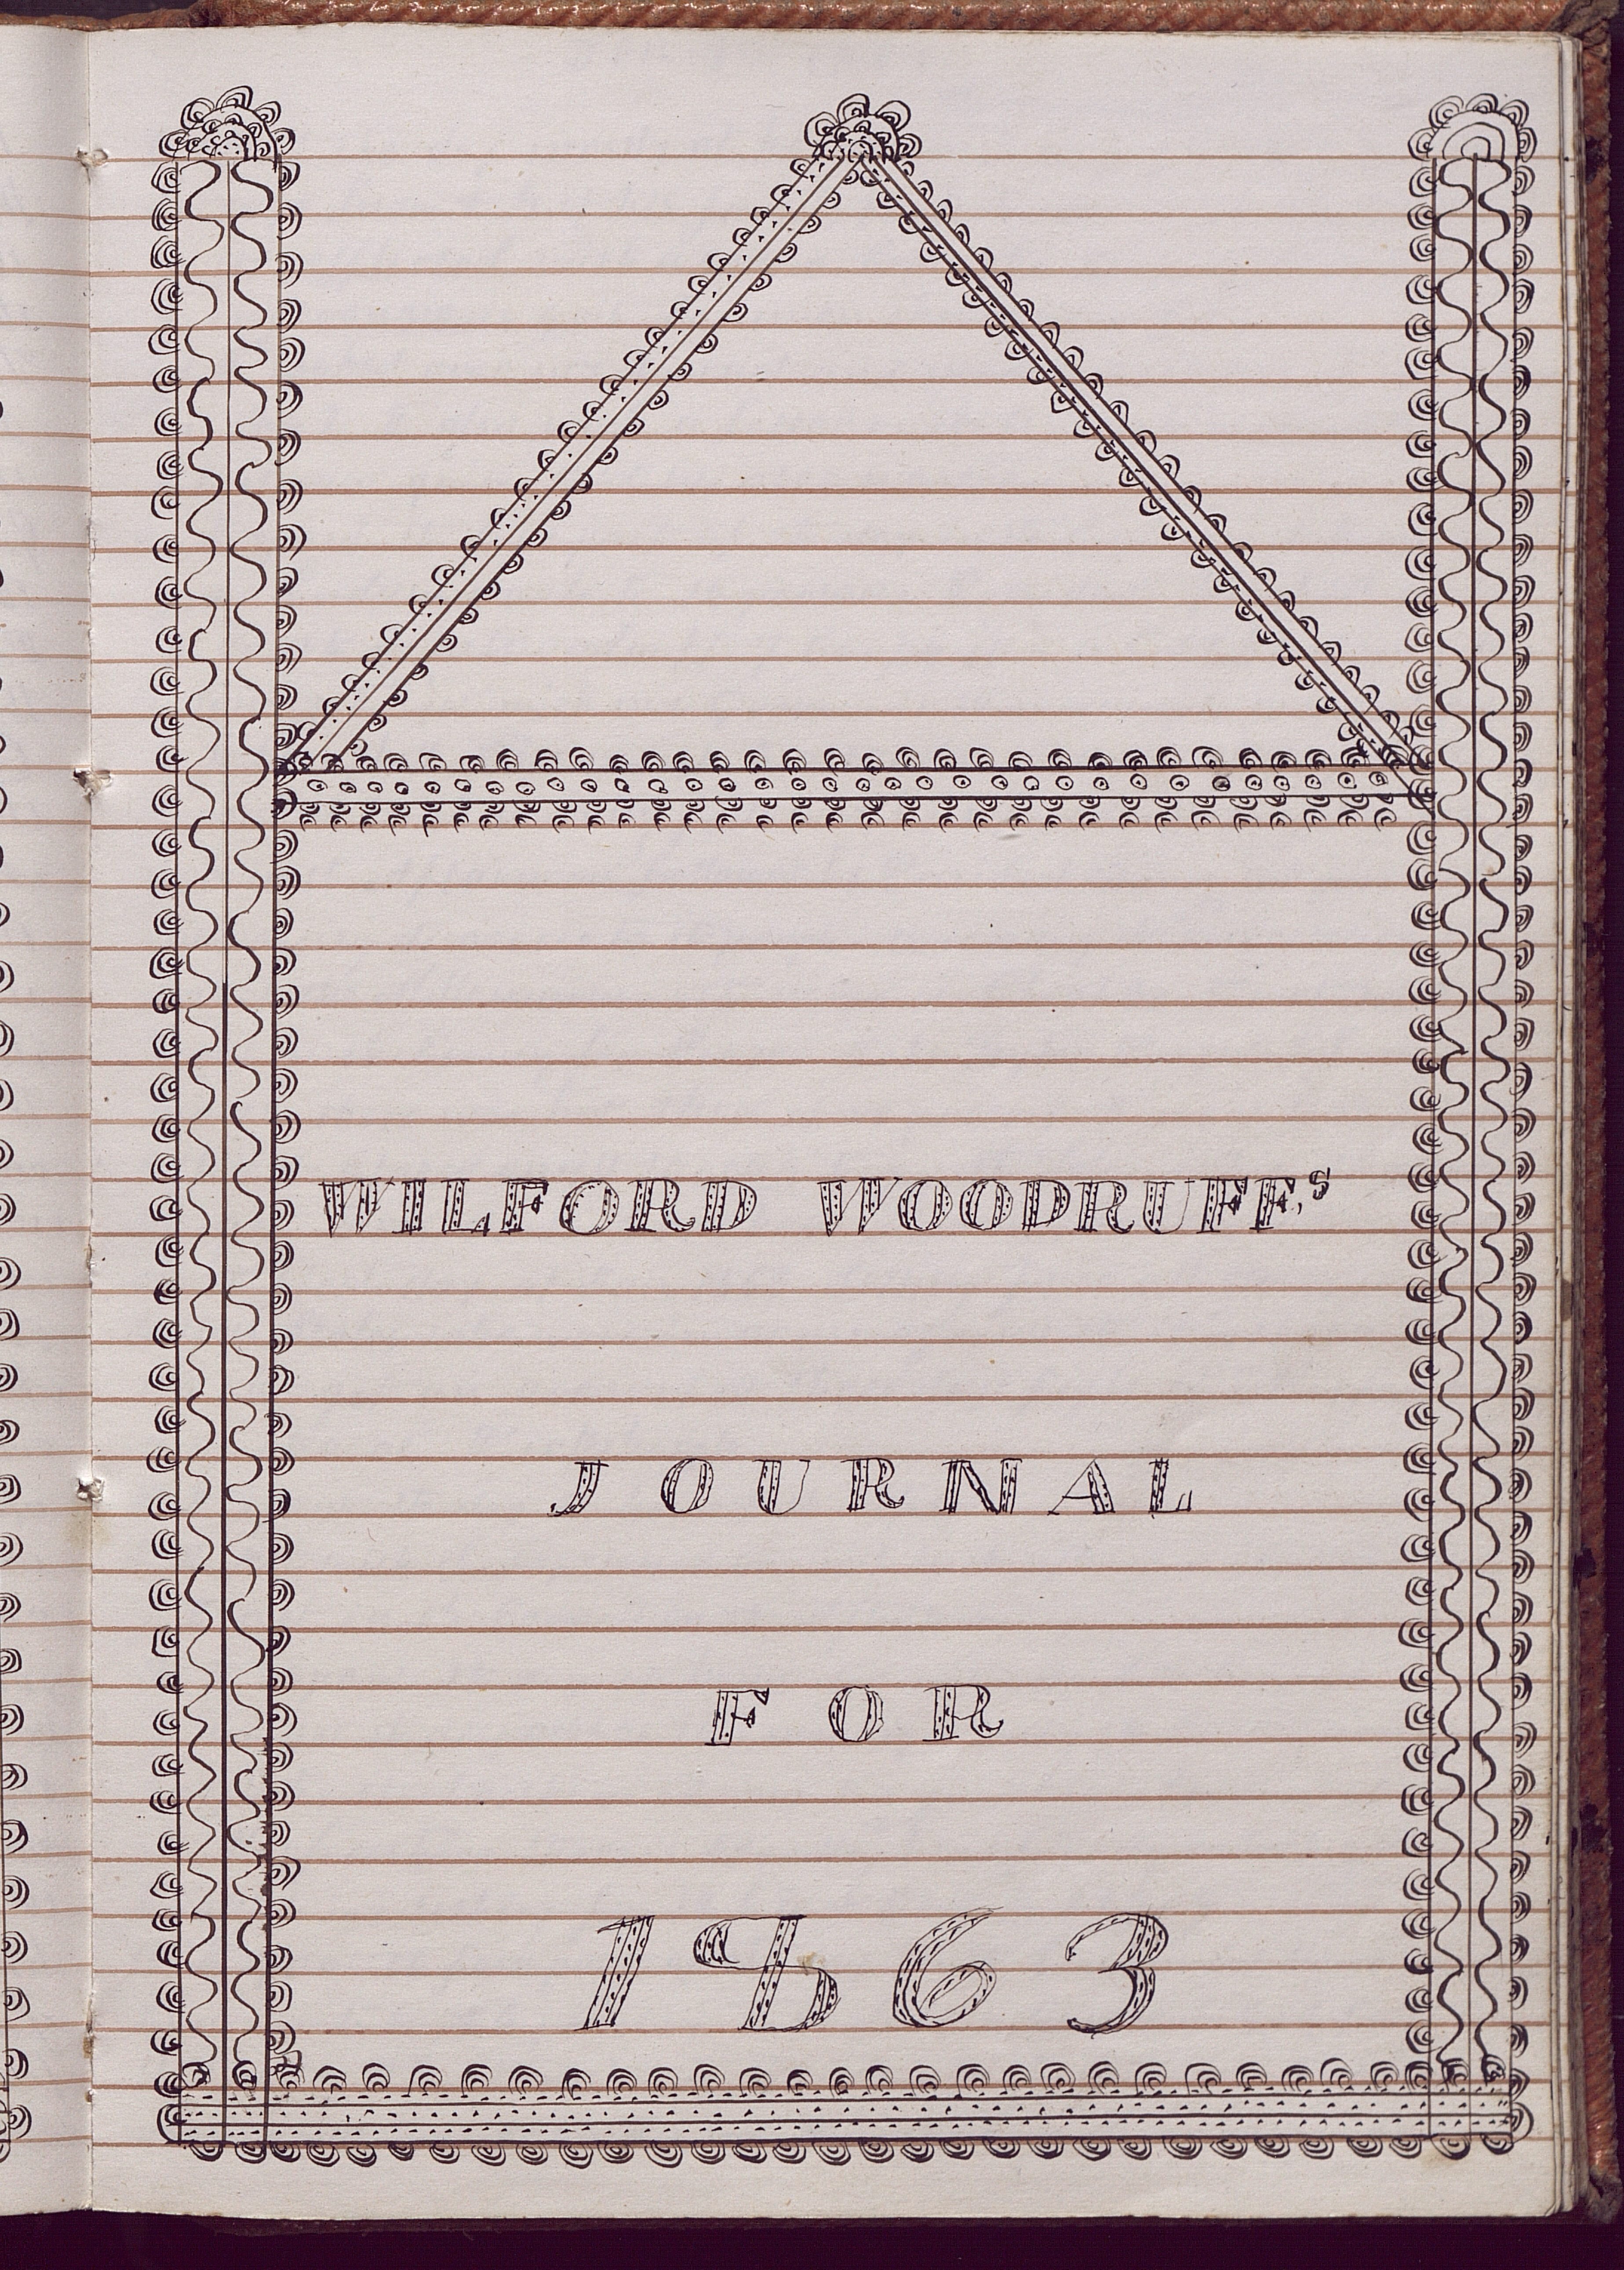 WILFORD WOODRUFF,s
JOURNAL
FOR
1863